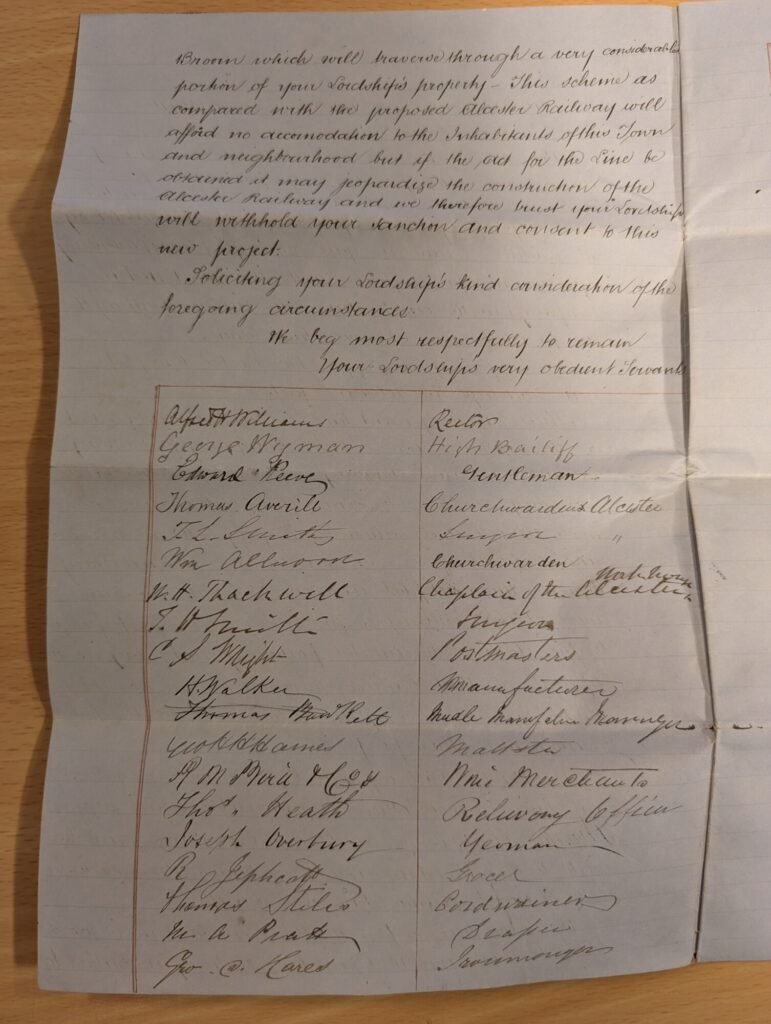 Broom which will traverse through a very considerable
portion of your Lordship's property - This scheme as
compared with the proposed Alcester Railway will
afford no accomodation to the Inhabitants of this Town
and neighbourhood but if the act for the Line be
obtained it may jeopardize the construction of the
Alcester Railway and we therefore trust your Lordship
will withhold your sanction and consent to this
new project.
Soliciting your Lordship's kind consideration of the
foregoing circumstances.
We beg most respectfully to remain
Your Lordships very obedient Servants
Alfred H Williams Rector
George Wyman High Bailiff
Edward Reeve Gentleman
Thomas Averill Churchwarden Alcester
T. L. Smith Surgeon "
Wm Allwood Churchwarden
W. H. Thackwill Chaplain of the Alcester Work house
T. H Smith Surgeon
C S Wright Postmasters
H. Walker manufacturer
Thomas Needle Manager
Geo H Haines Maltster
R M Bird & Co Wine Merchants
Thos. Heath Relieving Officer
Joseph Overbury Yeoman
R Jephcott Grocer
Thomas Stiles Cordwainer
M. A Pratt Draper
Geo. D. Hares Ironmonger